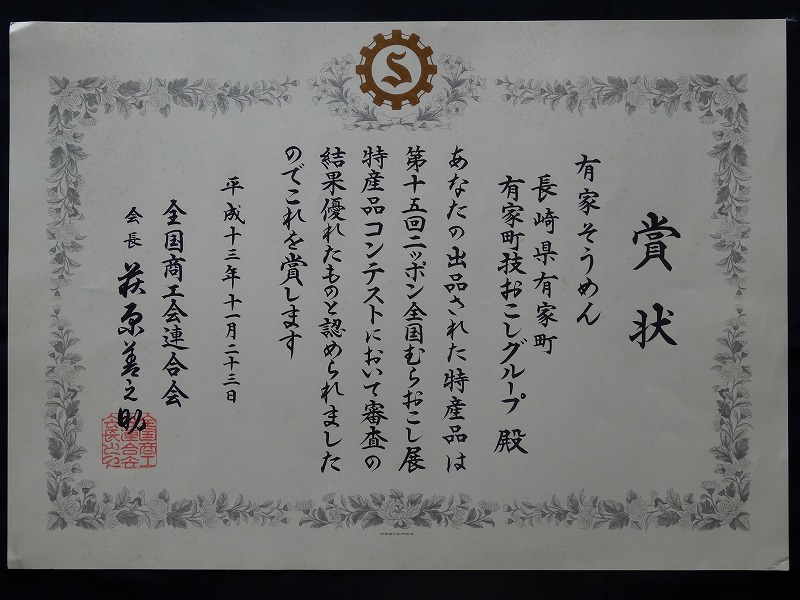 S
賞状
有家そうめん
長崎県有家町
有家町技おこしグループ 殿
あなたの出品された特産品は
第十五回ニッポン全国むらおこし展
特産品コンテストにおいて審査の
結果優れたものと認められました
のでこれを賞します
平成十三年十一月二十三日
全国商工会連合会
会長 萩原善之助
全国商工
連合会
会長之印